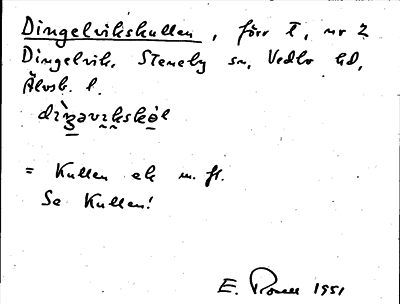 Dingelvikskullen, förr t, nr 2
Dingelvik, Steneby sn, Vedbo hd,
Älvsb. l.
= Kullen ek m. fl.
Se Kullen!
E. 1951